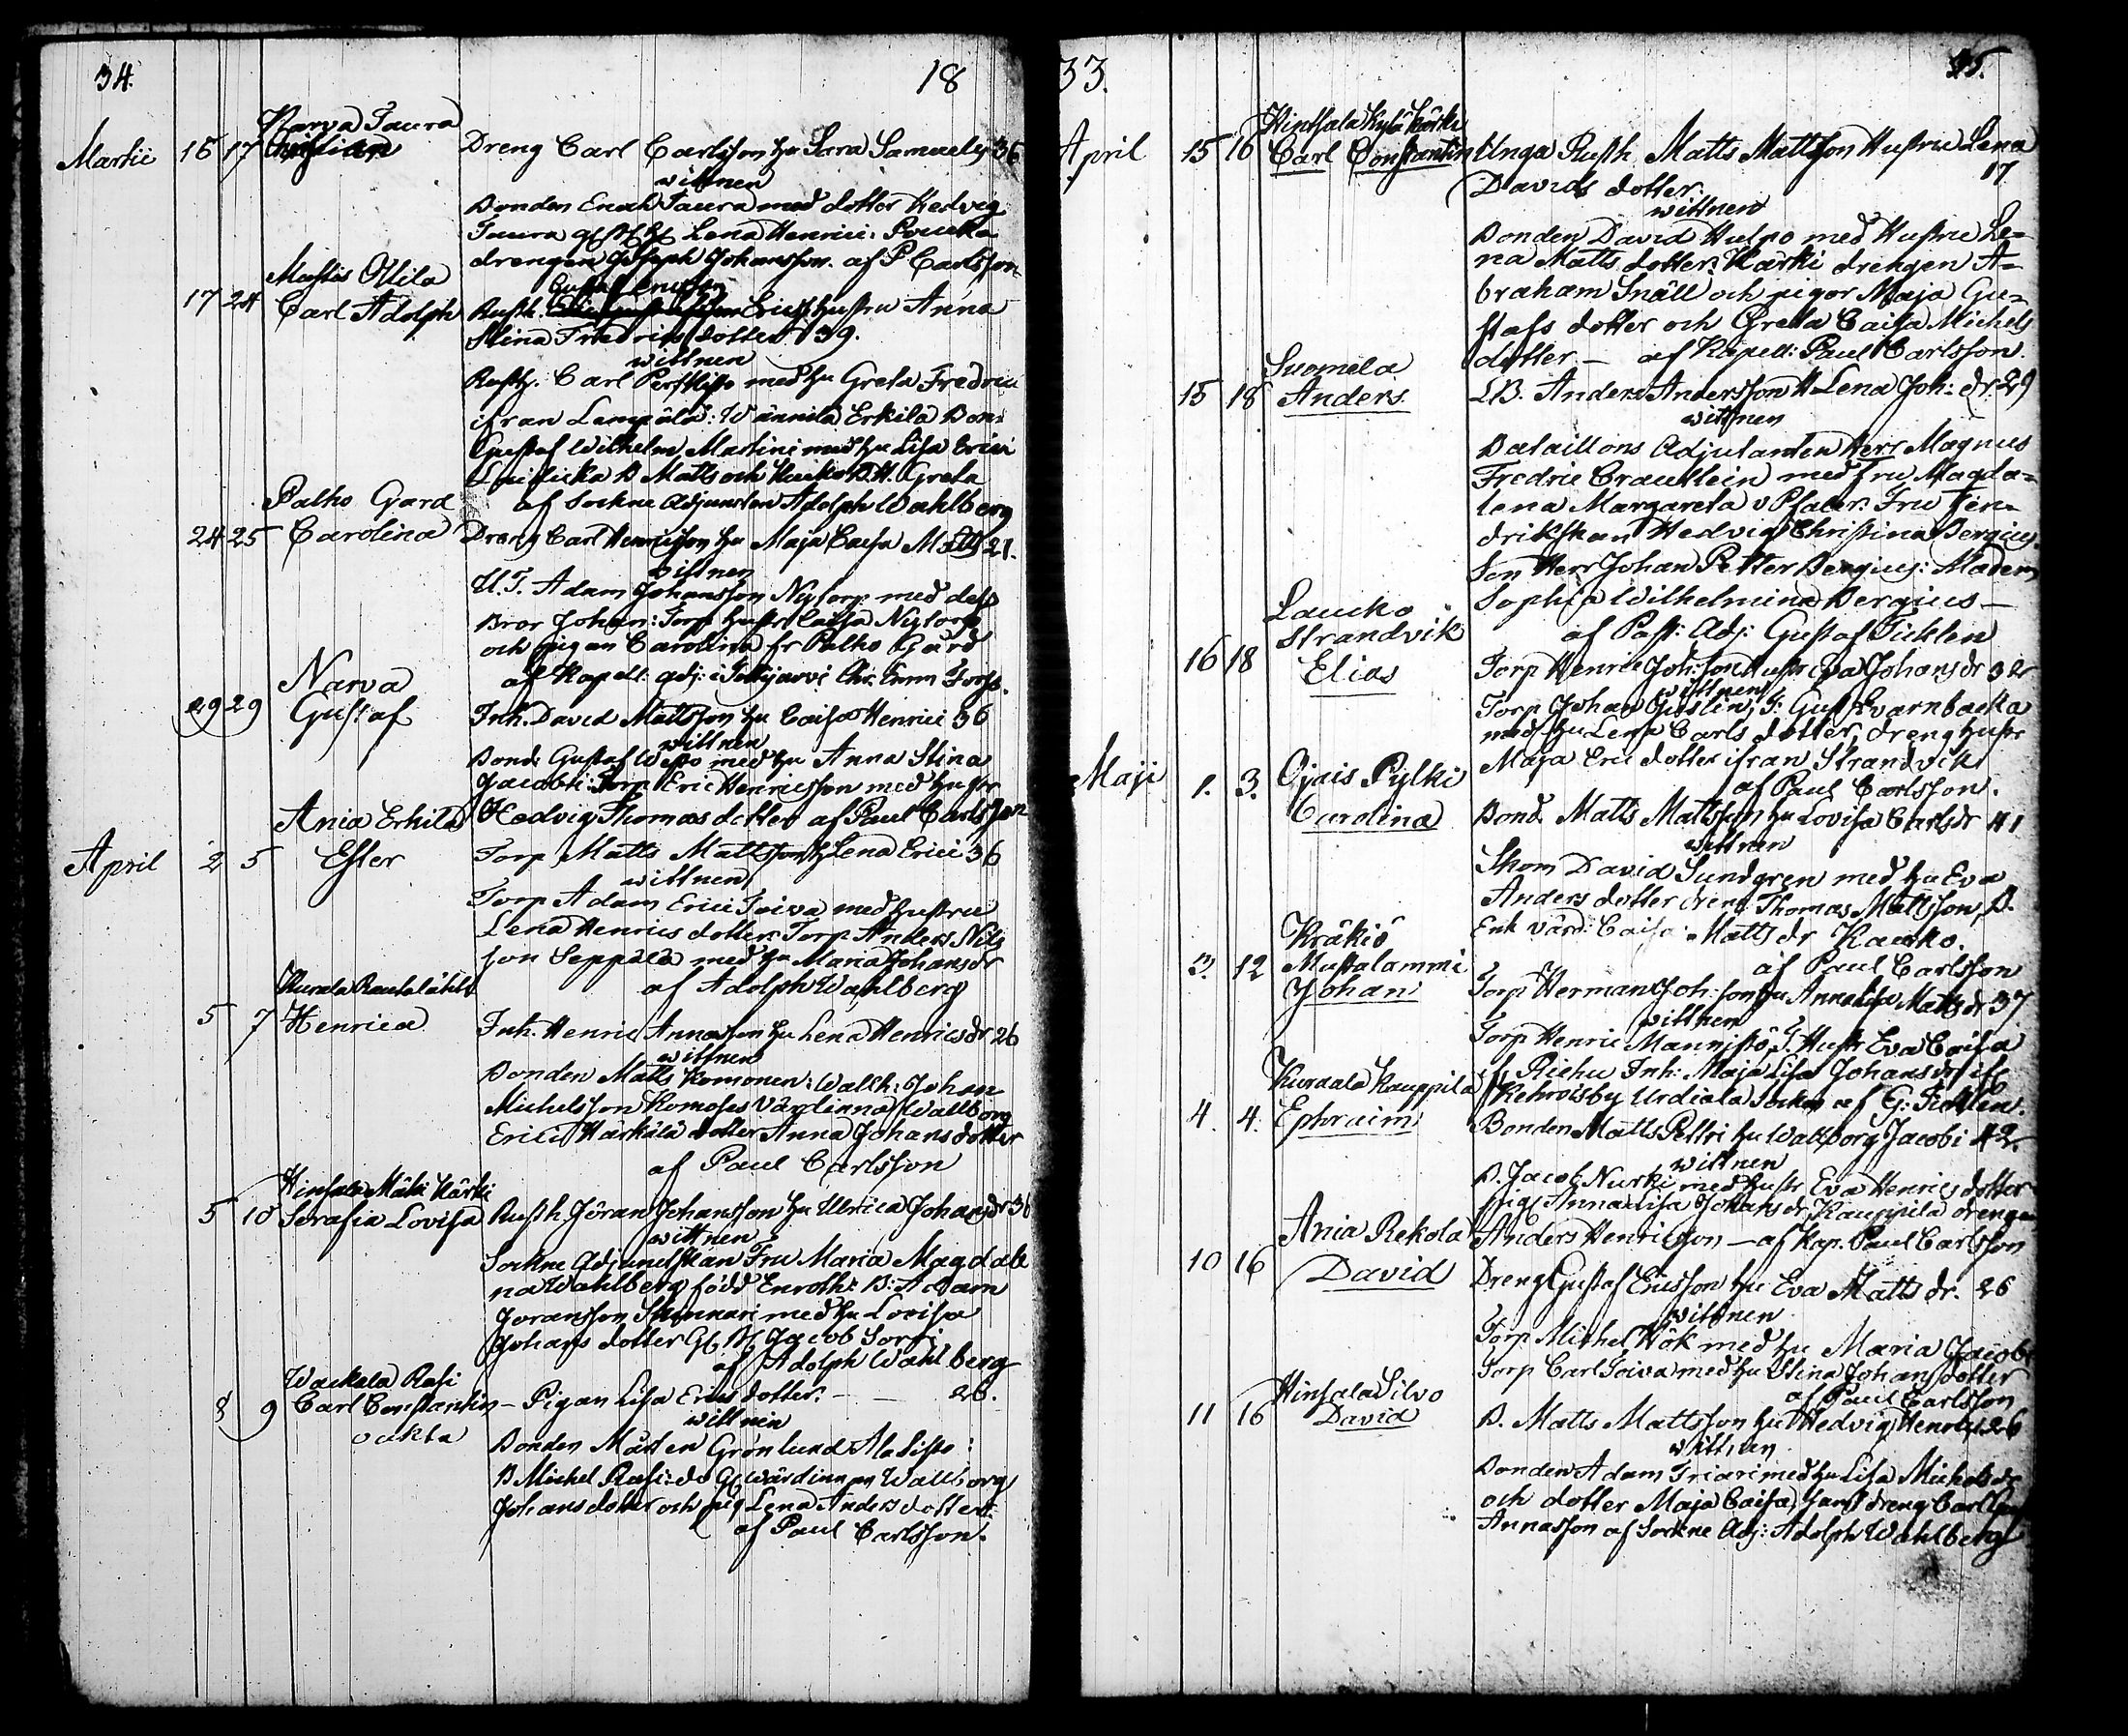 34.
18
Narva Taura
Martii 15 17 Christian Dreng Carl Carlsson hu Sara Samuels 36
wittnen
Bonden Enoch Taura med dotter Hedvig
Taura Lena Henrici: Pouka
drengen Joseph Johansson. af P Carlsson
Mastis Ollila
Gustaf Ericsson
17 24 Carl Adolph Rusth. Erics hustru Anna
Stina Fredrics dotter 39.
wittnen
Rusth: Carl Perskisto med hu Greta Fredrici
ifran Lempälä: Wännilä Erkilä Bon:
Gustaf Wilhelm Martini med hu Lisa Erici
B Matts och Kuckos D.H. Greta
Palho Gard
af Sockne Adjuncten Adolph Wahlberg
24 25 Carolina Dreng Carl Henricsson hu Maja Caisa Matts 21.
wittnen
U.T. Adam Johansson Nytorp med dess
Bror Johan: Torp hustr Caisa Nytorp
och pigan Carolina fr Palho Gård
Narva
af Kapell: adj: i Tottijärvi Chr. Emn Forss.
29 29 Gustaf Inh. David Mattsson hu Caisa Henrici 36
wittnen
Bond: Gustaf Westo med hu Anna Stina
Jacobi: Torp Eric Henricsson med hustr
Ania Erkilä Hedvig Thomas dotter af Paul Carlsson
April 2 5 Ester Torp Matts Mattsson h Lena Erici 36
wittnen
Torp Adam Erici Toiva med hustru
Lena Henrics dotter: Torp Anders Nils
son Seppälä med hu Maria Johansdr
Kurala Rautalähti
af Adolph Wahlberg
5 7 Henrica Inh. Henric Annasson hu Lena Henricsdr 26
wittnen
Bonden Matts Komonen: Wallk: Johan
Michelsson Komoses Värdinna Wallborg
Erici Härkälä dotter Anna Johans dotter
af Paul Carlsson
Hinsala Mäki Kärki
5 10 Serafia Lovisa Rusth Jöran Johansson hu Ulrica Johansdr 36
wittnen
Sockne Adjunctskan Fru Maria Magdale
na Wahlberg född Enroth: B: Adam
Joransson Skinnari med hu Lovisa
Johans dotter Jacob Sorri
af Adolph Wahlberg
Wackala Rasi
8 9 Carl Constantin – Pigan Lisa Erics dotter. – – 26.
oäkta
wittnen
Bonden Mårten Grönlund Ala Sisto:
B Michel Rasi: do Gl wärdinnan Wallborg
Johans dotter och pig Lena Anders dotter.
af Paul Carlsson.
33.
35.
Hinsala Kylä Kärki
April 15 16 Carl Constantin Unga Rusth Matts Mattsson Hustru Lena
Davids dotter. 17
wittnen
Bonden David Hulpo med Hustru Le=
na Matts dotter: Kärki drengen A=
braham Snäll och pigor Maja Gu=
stafs dotter och Greta Caisa Michels
dotter – af Kapell: Paul Carlsson.
Suomela
15 18 Anders LB. Anders Andersson H Lena Joh: dr. 29
wittnen
Bataillons Adjutanten Herr Magnus
Fredric Brautlein med fru Magda=
lena Margareta v Pfaler: Fru Fen=
drikskan Hedvig Christina Bergius.
Son Herr Johan Petter Bergius: Madem
Sophia Wilhelmina Bergius –
af Past: Adj: Gustaf Ticklen
Laucko
Strandvik
16 18 Elias Torp Henric Joh:son Hustr Eva Johans dr 32
wittnen
Torp Johan Gustin, T: Gust Kvarnbacka
med hu Lena Carls dotter, dreng hustr
Maja Eric dotter ifran Strandvik
af Paul Carlsson.
Maji 1. 3. Ojais Pylki
Carolina Bond. Matts Mattsson hu Lovisa Carlsdr 41
wittnen
Skom David Sundgren med hu Eva
Anders dotter dreng Thomas Mattsson B.
Enk värd: Caisa Matts dr Kausko.
af Paul Carlsson
Kräkiö
3. 12 Mustalammi
Johan Torp Herman Joh:son hu Anna Lisa Matts dr 37
wittnen
Torp Henric Mannistö, T. Hustr Eva Caisa
if Riehu Inh: Maja Lisa Johans dr if
Kehroisby Urdiala Socken af G: Ticklen.
Kurdala Kauppila
4. 4. Ephraim Bonden Matts Peltri hu Wallborg Jacobi 42
wittnen
B. Jacob Nurki med hustr Eva Henrics dotter
pig Anna Lisa Johans dr Kauppila drengen
Anders Henricsson – af Kap. Paul Carlsson
Ania Rekola
10 16 David Dreng Gustaf Ericsson hu Eva Matts dr. 26
wittnen
Torp Michel Hök med hu Maria Jacobi
Torp Carl Toiva med hu Stina Johans dotter
af Paul Carlsson
Hinsala Silvo
11 16 David B. Matts Mattsson hu Hedvig Henrics 26
wittnen
Bonden Adam Friari med hu Lisa Michels dr
och dotter Maja Caisa, samt dreng Carl
Annasson af Sockne Adj: Adolph Wahlberg